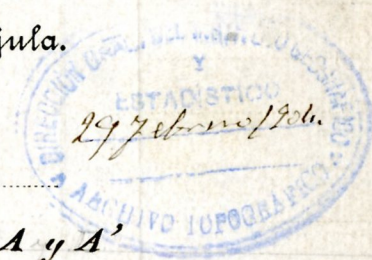 jula.
DIRECCIÓN GRAL. DEL INSTITUTO GEOGRÁFICO
Y
ESTADÍSTICO
29 Febrero
ARCHIVO TOPOGRÁFICO
A y A'